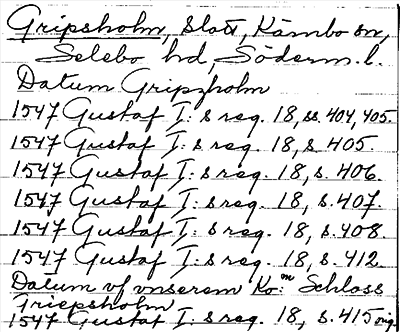 Gripsholm, slott, Kämbo sn,
Selebo hd, Söderm. l.
Datum Gripzholm
1547 Gustaf I: s reg. 18, ss. 404, 405.
1547 Gustaf I: s reg. 18, s. 405.
1547 Gustaf I: s reg. 18, s. 406.
1547 Gustaf I: s reg. 18, s. 407.
1547 Gustaf I: s reg. 18, s. 408.
1547 Gustaf I: s reg. 18, s. 412.
Datum vf vnserem Ko:m Schloss
Griepsholm
1547 Gustaf I: s reg. 18, s. 415